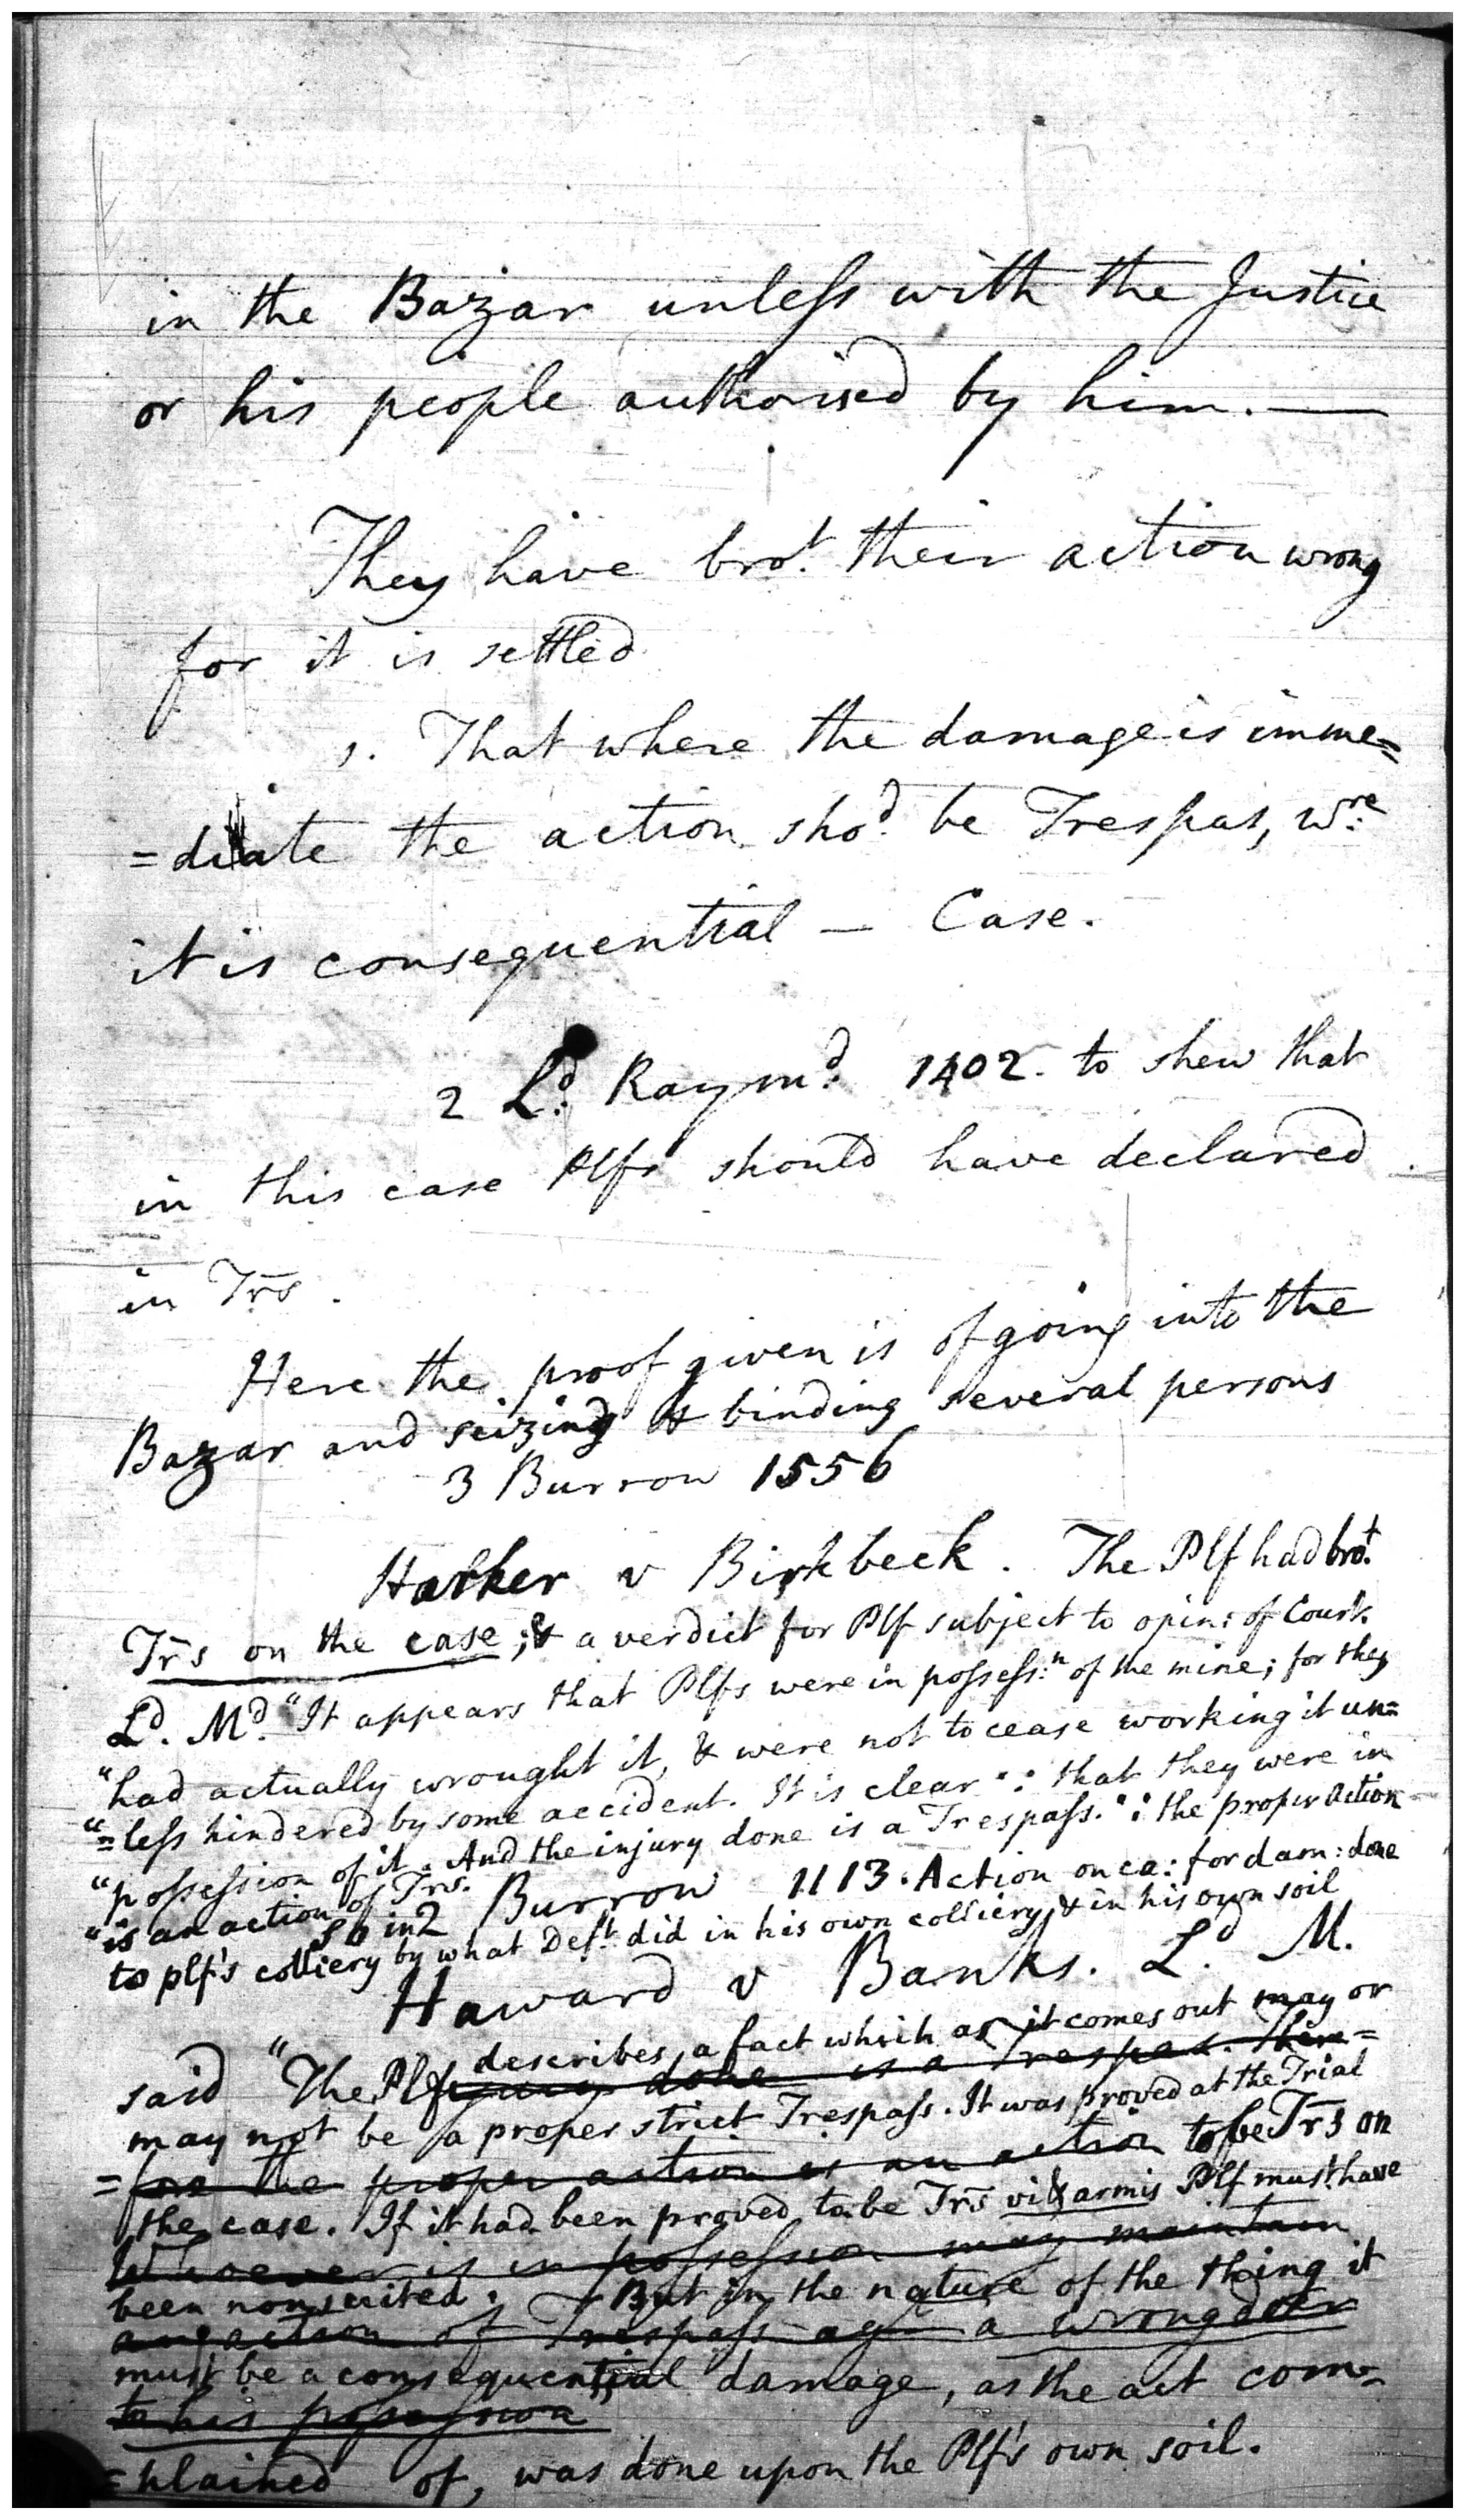 in the Bazar unless with the Justice
or his people authorised by him. —
They have bro.t their action wrong
for it is settled
1. That where the damage is imme=
=diate the action sho.d be Trespas, W.re
it is consequential — Case.
2 L.d Raym.d 1402. to shew that
in this case Plfs should have declared
in Trs.
Here the proof given is of going into the
Bazar and seizing & binding several persons
3 Burrow 1556
Harker v Birkbeck. The Plf had bro.t
Trs on the case; & a verdict for Plf subject to opin: of Court.
L.d M.d "It appears that Plfs were in possess:n of the mine; for they
"had actually wrought it, & were not to cease working it un=
"=less hindered by some accident. It is clear ∵ that they were in
"possession of it. And the injury done is a Trespass. ∵ the proper action
"is an action of Trs.
So in 2 Burrow 1113. Action on ca: for dam: done
to plf's colliery by what Def.t did in his own colliery, & in his own soil
Haward v Banks. L.d M.
describes, a fact which as it comes out may or
said "The Plf injury done is a Trespas. There=
may not be a proper strict Trespass. It was proved at the Trial
=fore the proper action is an action to be Trs on
the case. If it had been proved to be Trs vi & armis Plf must have
Whoever is in possession may maintain
been nonsuited. But in the nature of the thing it
an action of Trespass ag.t a wrongdoer
must be a consequential damage, as the act com=
to his possession
=plained of, was done upon the Plf's own soil.